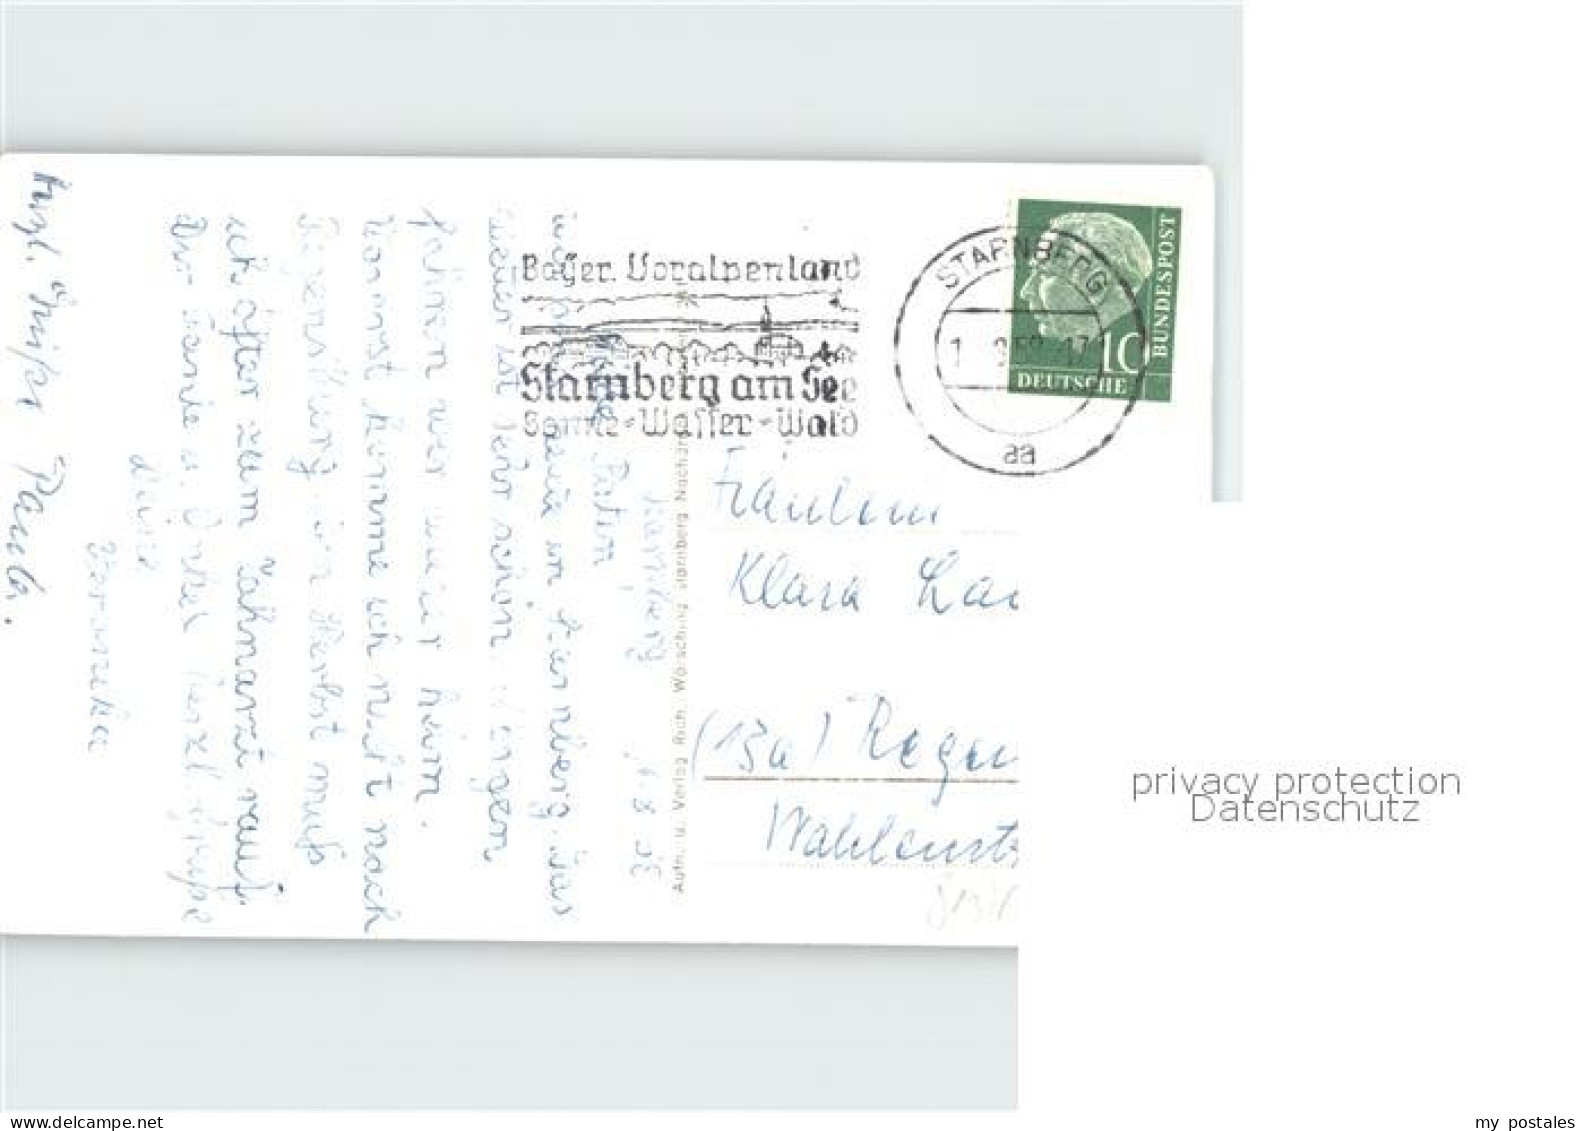 Starnberg 1.8.58
Liebe Patin
wir sind in Starnberg. Das
Wetter ist sehr schön. Morgen
fahren wir wieder heim.
Vorerst komme ich nicht nach
Regensburg. Im Herbst muß
ich öfter zum Zahnarzt rauf.
Dir Tante u. Onkel herzl. Grüße
deine
Veronika
Herzl. Grüße Paula.
Aufn. u. Verlag Rich. Wörsching Starnberg Nachdr
Bayer. Voralpenland
Starnberg am See
Sonne-Wasser-Wald
STARNBERG
1 58-17
aa
10
DEUTSCHE
BUNDESPOST
Fräulein
Klara
(13a) Regen
Wahlenst
privacy protection
Datenschutz
www.delcampe.net
my postales